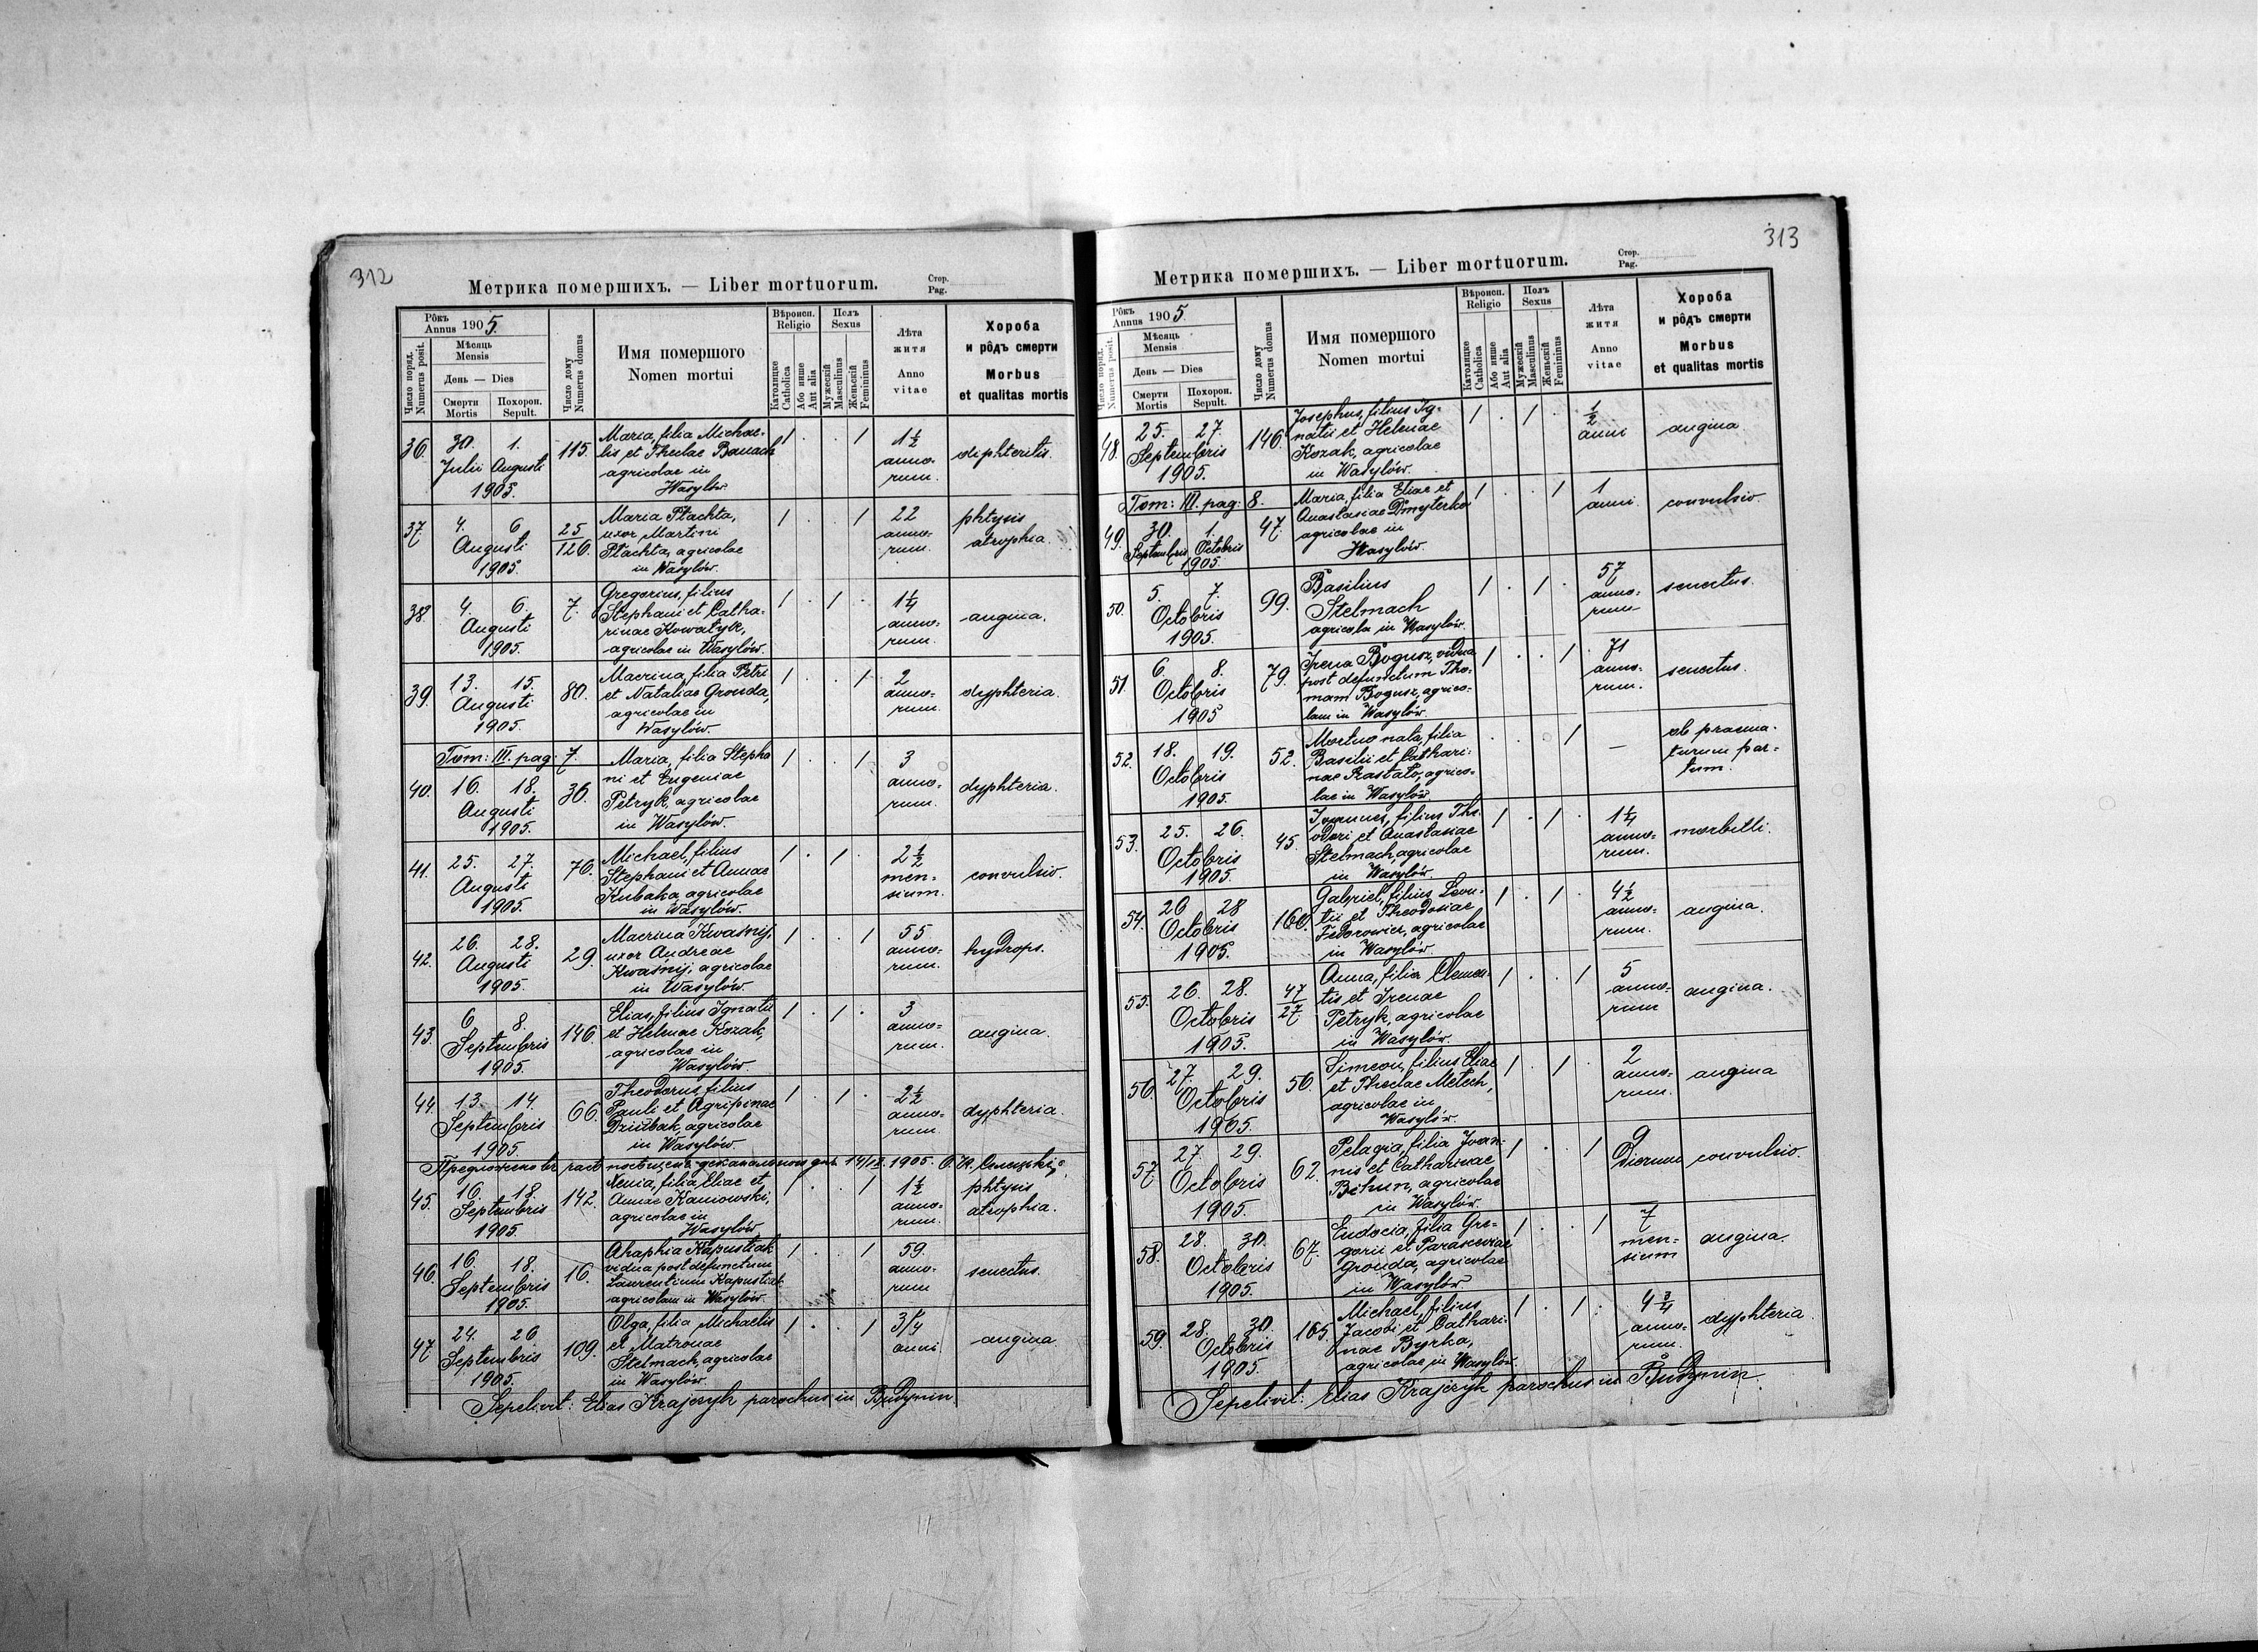 312
Метрика помершихъ. — Liber mortuorum.
Стор.
Pag.
Рôкъ
Annus 1905.
Число поряд.
Numerus posit.
Мѣсяць
Mensis
День — Dies
Смерти
Mortis
Похорон.
Sepult.
Число дому
Numerus domus
Имя помершого
Nomen mortui
Вѣроисп.
Religio
Католицке
Catholica
Або инше
Aut alia
Полъ
Sexus
Мужескій
Masculinus
Женьскій
Femininus
Лѣта
житя
Anno
vitae
Хороба
и рôдъ смерти
Morbus
et qualitas mortis
36. 30. 1. 115. Maria, filia Michae- / . . / 1 1/2 diphteritis.
Julii Augusti lis et Theclae Banach anno-
1905. agricolae in rum.
Wasylów
37. 4. 6 25/126. Maria Płachta, / . . / 22 phtysis
Augusti uxor Martini anno- atrophia
1905. Płachta, agricolae rum.
in Wasylów.
38. 4. 6. 7. Gregorius, filius / . / . 1 1/4 angina.
Augusti Stephani et Catha- anno-
1905. rinae Kowatyk, rum.
agricolae in Wasylów.
39. 13. 15. 80. Macrina, filia Petri / . . / 2 dyphteria.
Augusti et Nataliae Gronda, anno-
1905. agricolae in rum.
Wasylów.
Tom: III. pag: 7.
40. 16. 18. 36. Maria, filia Stepha / . . / 3 dyphteria.
Augusti ni et Eugeniae anno-
1905. Petryk, agricolae rum.
in Wasylów.
41. 25. 27. 76. Michael, filius / . / . 2 1/2 convulsio.
Augusti Stephani et Annae men-
1905. Kubaka, agricolae sium.
in Wasylów.
42. 26. 28. 29. Macrina Kwaśnij, / . . / 55 hydrops.
Augusti uxor Andreae anno-
1905. Kwaśnij, agricolae rum.
in Wasylów
43. 6 8. 146. Elias, filius Ignatii / . / . 3 angina.
Septembris et Helenae Kozak, anno-
1905. agricolae in rum.
Wasylów.
44. 13. 14 66. Theodorus, filius / . / . 2 1/2 dyphteria.
Septembris Pauli et Agripinae anno-
1905. Dziubak, agricolae rum.
in Wasylów
14/IX. 1905.
45. 16. 18. 142. Xenia, filia Eliae et / . . / 1 1/2 phtysis
Septembris Annae Kaniowski, anno- atrophia.
1905. agricolae in rum.
Wasylów
46. 16. 18. 16. Ahaphia Kapustiak / . . / 59. senectus.
Septembris vidua post defunctum anno-
1905. Laurentium Kapustiak rum
agricolam in Wasylów.
47. 24. 26. 109. Olga, filia Michaelis / . . / 3/4 angina
Septembris et Matronae anni
1905. Stelmach, agricolae
in Wasylów.
Sepelivit: Elias Krajczyk parochus in Budynin
313
Метрика помершихъ. — Liber mortuorum.
Стор.
Pag.
Рôкъ
Annus 1905.
Число поряд.
Numerus posit.
Мѣсяць
Mensis
День — Dies
Смерти
Mortis
Похорон.
Sepult.
Число дому
Numerus domus
Имя помершого
Nomen mortui
Вѣроисп.
Religio
Католицке
Catholica
Або инше
Aut alia
Полъ
Sexus
Мужескій
Masculinus
Женьскій
Femininus
Лѣта
житя
Anno
vitae
Хороба
и рôдъ смерти
Morbus
et qualitas mortis
48. 25. 27. 146. Josephus, filius Ig- / . / . 1/2 angina
Septembris natii et Helenae anni
1905. Kozak, agricolae
in Wasylów.
Tom: III. pag: 8.
49. 30. 1. 47. Maria, filia Eliae et / . . / 1 convulsio.
Septembris Octobris Anastasiae Dmyterko anni.
1905 agricolae in
Wasylów.
50. 5. 7. 99. Basilius / . / . 57 senectus.
Octobris Stelmach anno-
1905. agricola in Wasylów. rum
51. 6 8. 79. Irena Bogusz, vidua / . . / 71 senectus.
Octobris post defunctum Tho- anno-
1905 mam Bogusz, agrico- rum.
lam in Wasylów.
52. 18. 19. 52. Mortuo nata, filia . . / — ab praema-
Octobris Basilii et Cathari- turum par-
1905. nae Rastato, agrico- tum.
lae in Wasylów.
53. 25. 26. 45. Ioannes, filius The- / . / . 1 1/4 morbilli.
Octobris odori et Anastasiae anno-
1905. Stelmach, agricolae rum.
in Wasylów.
54. 26 28 160. Gabriel, filius Leon- / . / . 4 1/2 angina.
Octobris tii et Theodosiae anno-
1905. Fedorowicz, agricolae rum.
in Wasylów.
55. 26. 28. 47/27. Anna, filia Clemen- / . . / 5 angina.
Octobris tis et Irenae anno-
1905. Petryk, agricolae rum
in Wasylów.
56. 27. 29. 56. Simeon, filius Eliae / . / . 2 angina
Octobris et Theclae Metech, anno-
1905. agricolae in rum.
Wasylów.
57. 27. 29. 62. Pelagia, filia Joan- / . . / 9 convulsio.
Octobris nis et Catharinae dierum
1905. Bihun, agricolae
in Wasylów.
58. 28. 30. 67. Eudocia, filia Gre- / . . / 7 angina.
Octobris gorii et Parasceviae men-
1905. Gronda, agricolae sium
in Wasylów
59. 28. 30 165. Michael, filius / . / . 4 3/4 dyphteria.
Octobris Jacobi et Cathari- anno-
1905. nae Byrka, rum.
agricolae in Wasylów.
Sepelivit: Elias Krajczyk parochus in Budynin.